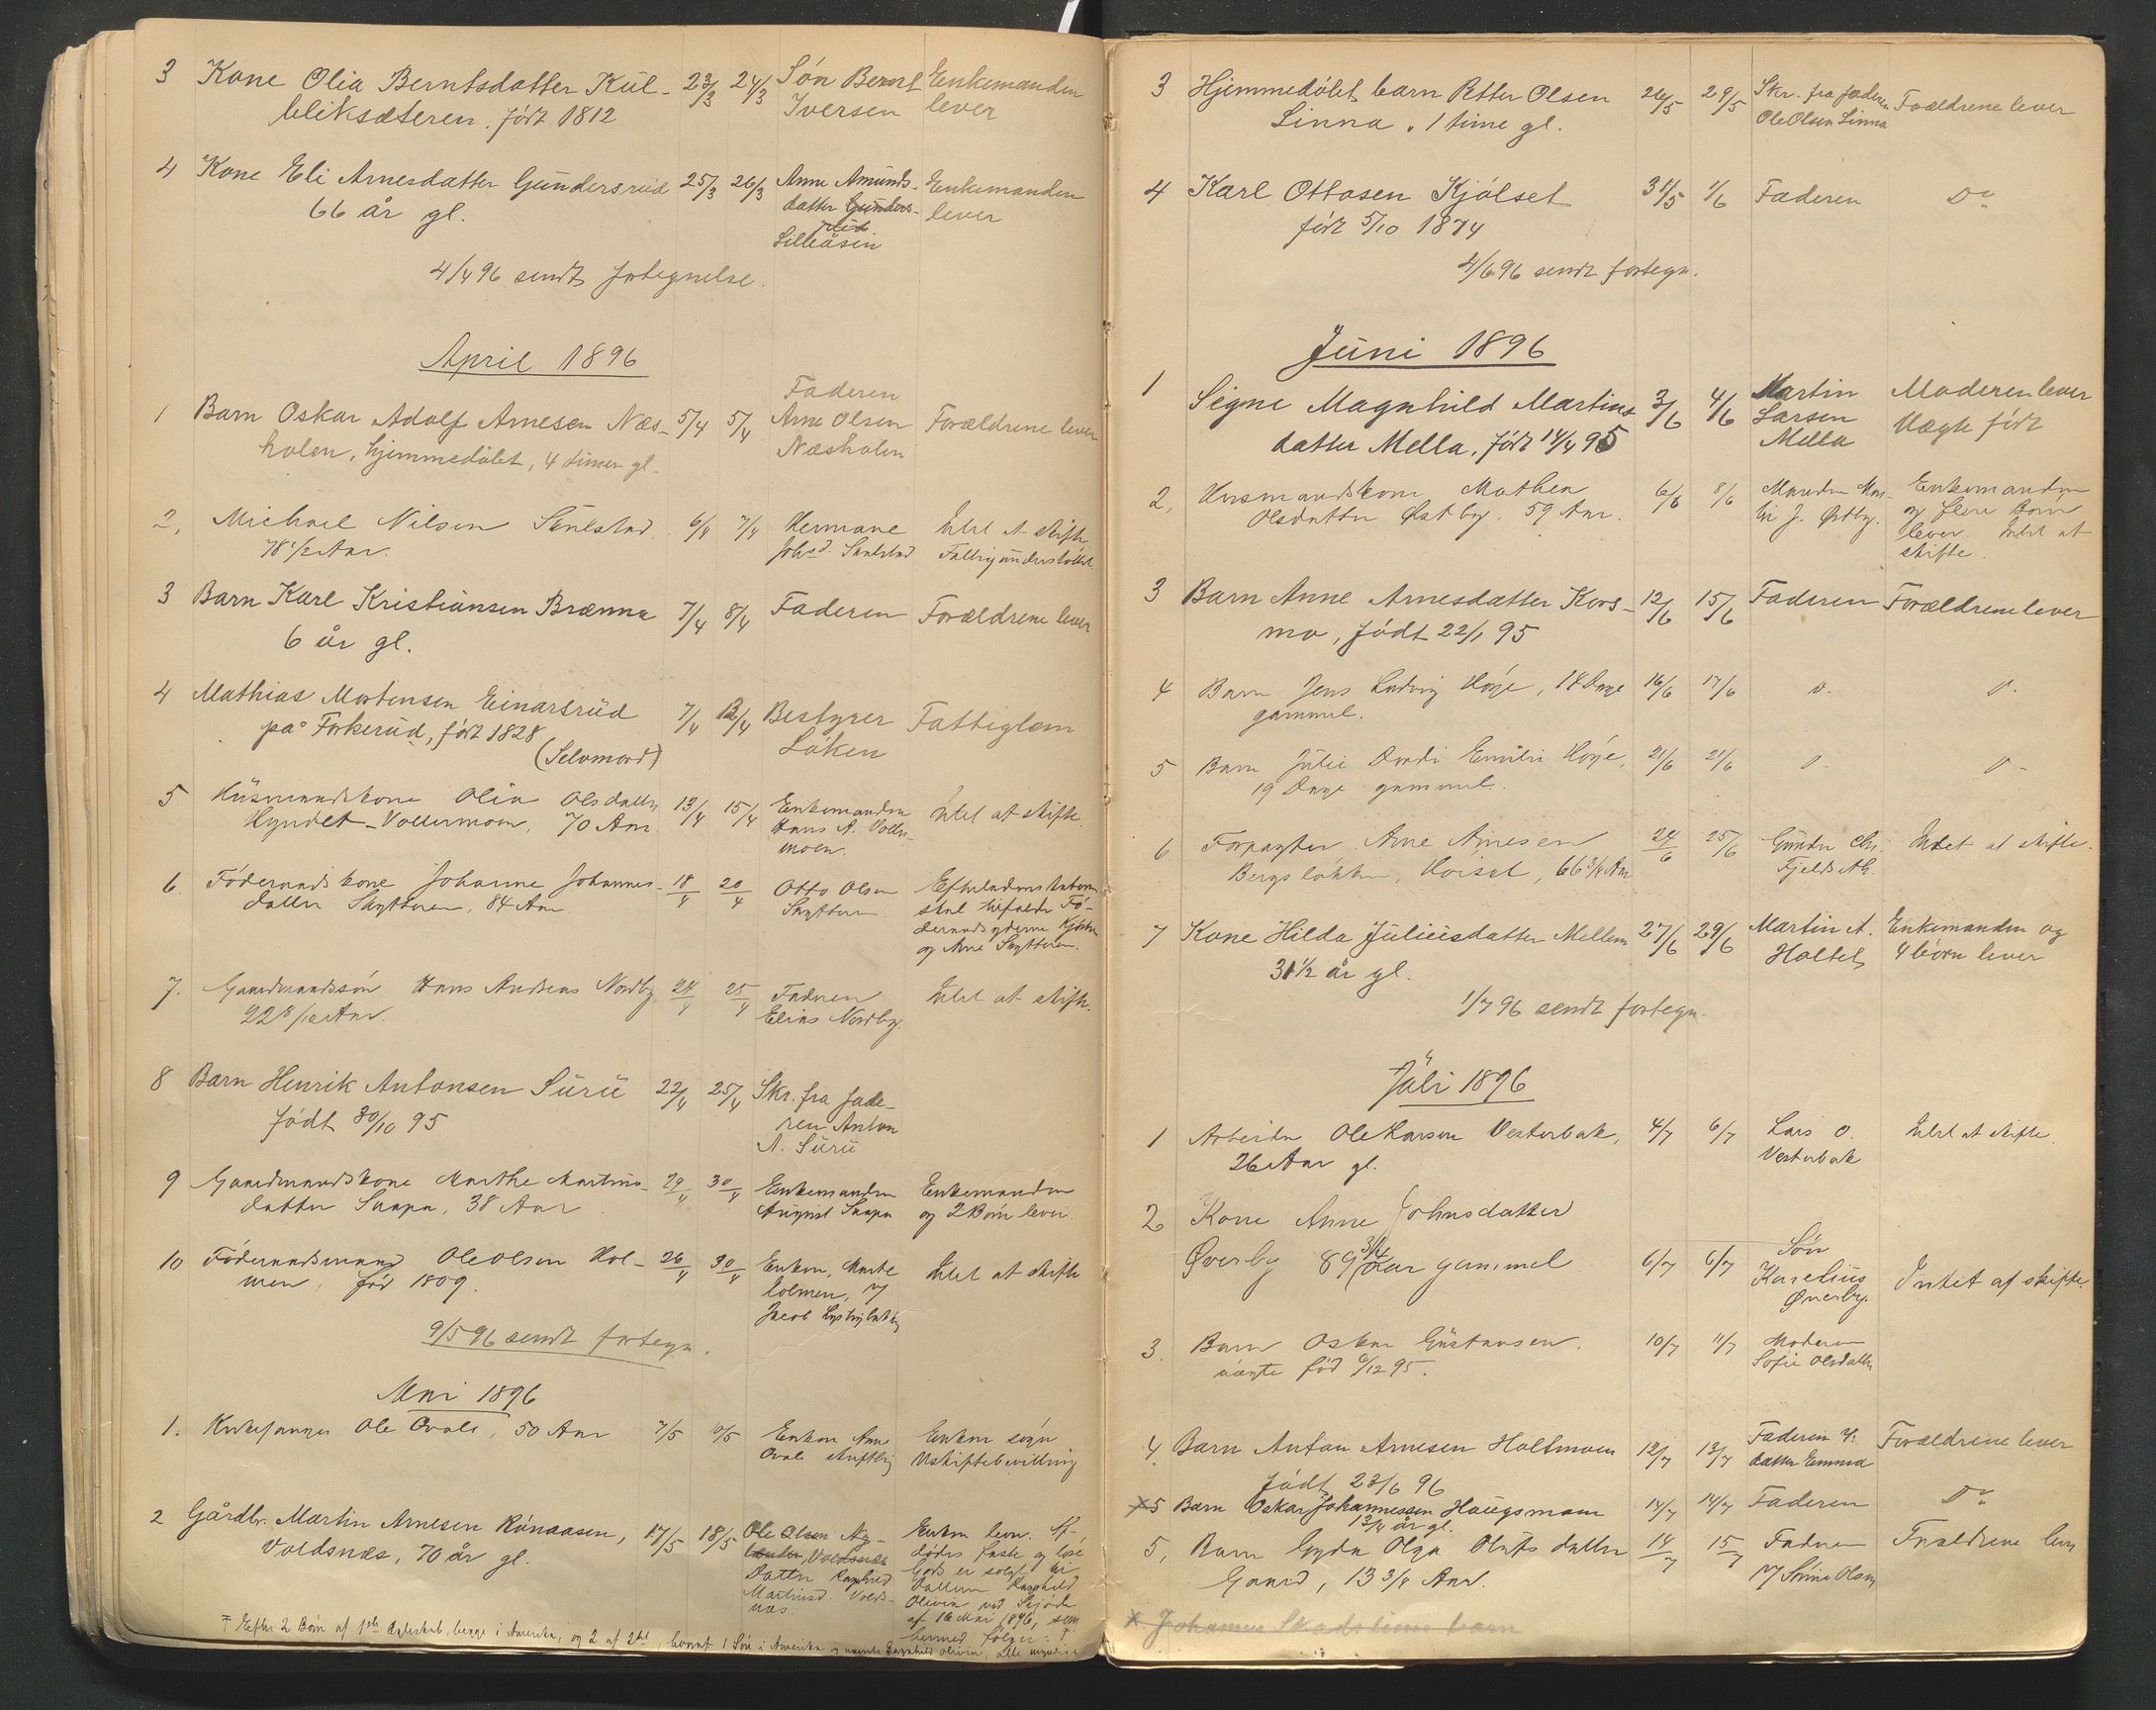 3 Kone Olia Berntsdatter Kül- 23/3 24/3 Søn Bernt Enkemanden
bliksæteren. født 1812 Iversen lever
4 Kone Eli Arnesdatter Gündersrüd 25/3 26/3 Anne Amünds- Enkemanden
66 år gl. datter Günders- lever
rüd
Lilleåsen
4/4 96 sendt fortegnelse.
April 1896
Faderen
1 Barn Oskar Adolf Arnesen Næs- 5/4 5/4 Arne Olsen Forældrene lever
holen, hjemmedøbt, 4 timer gl. Næsholen
2, Michael Nilsen 6/4 7/4 Hermane Intet at skifte
78 1/2 Aar. Fattigunderstøttet.
3 Barn Karl Kristiansen Brænna 7/4 8/4 Faderen Forældrene lever
6 år gl.
4 Mathias Mortensen Einarsrüd 7/4 12/4 Bestyrer Fattiglem
på Forkerüd, født 1828 Løken
(Selvmord)
5 Hüsmandskone Olia Olsdatter 13/4 15/4 Enkemanden Intet at skifte.
Hyndet-Vollermoen, 70 Aar Hans A. Voller-
moen.
6. Føderaadskone Johanne Johannes- 18/4 20/4 Otto Olsen
datter Skytteren, 84 Aar Skytteren skal tilfalde Fø-
deraadsyderne
og Arne Skytteren.
7. Gaardmandssøn Hans Andreas Nordby 24/4 25/4 Faderen Intet at skifte.
22 Aar. Elias Nordby.
8 Barn Henrik Antonsen Sürü 22/4 25/4 Skr. fra fade-
født 30/10 95 ren Anton
A. Sürü
9 Gaardmandskone Marthe Martins- 29/4 30/4 Enkemanden Enkemanden
datter Saapa, 38 Aar August Saapa og 2 Børn lever.
10 Føderaadsmand Ole Olsen Hol- 26/4 30/4 Enken, Marte Intet at skifte
men, fød 1809. Holmen, v/
Jacob
9/5 96 sendt fortegn.
Mai 1896
1. Kirkesanger Ole Ovale, 50 Aar 7/5 10/5 Enken Anne Enken søger
Ovale skriftlig Uskiftebevilling
2 Gårdbr. Martin Arnesen Rönaasen, 17/5 18/5 Ole Olsen Enken lever. Af-
Voldsnæs, 70 år gl. Voldsnæs dødes faste og løse
Datter Ragnhild Gods er solgt til
Martinsd. Volds- Datteren Ragnhild
næs Olivia ved Skjøde
af 16 Mai 1896, som
hermed følger.
Efter 2 Børn af 1ste Ægteskab, begge i Amerika, og 2 af 2det, hvoraf 1 Søn i Amerika og Ragnhild Olivia, alle myndige
3 Hjemmedøbt barn Petter Olsen 26/5 29/5 Skr. fra faderen Forældrene lever
Linna, 1 time gl. Ole Olsen Linna
4 Karl Ottosen Kjølset 31/5 1/6 Faderen Do
født 5/10 1874
4/6 96 sendt fortegn.
Jüni 1896
1 Signe Magnhild Martins- 3/6 4/6 Martin Moderen lever
datter Mella, født 14/4 95 Larsen Uægte født
Mella
2, Husmandskone Mathea 6/6 8/6 Manden Mar- Enkemanden
Olsdatter Østby. 59 Aar. tin J. Østby. og flere Børn
lever. Intet at
skifte.
3 Barn Anne Arnesdatter Kors- 12/6 15/6 Faderen Forældrene lever
mo, født 22/1 95
4 Barn Jens Ludvig Høye, 14 Dage 16/6 17/6
gammel.
5 Barn Jülie Dordi Emilie Høye, 21/6 21/6
19 Dage gammel.
6 Forpagter Arne Arnesen 24/6 25/6 Günder Chr. Intet at skifte.
Bergsløkken, Hoiset, 66 3/4 Aar
7 Kone Hilda Jüliüsdatter Mellem 27/6 29/6 Martin A. Enkemanden og
31 1/2 år gl. Holtet 4 börn lever
1/7 96 sendt fortegn.
Jüli 1896
1 Arbeider Ole Larsen Vesterbak, 4/7 6/7 Lars O. Intet at skifte.
26 Aar gl. Vesterbak
2 Kone Anne Johnsdatter
Øverby 89 3/4 aar gammel 6/7 6/7 Søn
Karelius Intet af skifte.
Øverby.
3. Barn Oskar Güstavsen. 10/7 11/7 Moderen
uægte fød 6/12 95. Sofie Olsdatter
4. Barn Anton Arnesen Holtmoen 12/7 13/7 Faderen v. Forældrene lever
født 23/6 96 datter Emma
x5 Barn Oskar Johannessen Haügsmoen 14/7 14/7 Faderen Do
1 3/4 år gl.
5, Barn Gyda Olga Olufsdatter 14/7 15/7 Faderen Forældrene lever
Gaard, 13 3/4 Aar. v/
x. Johannes Skadsliens barn